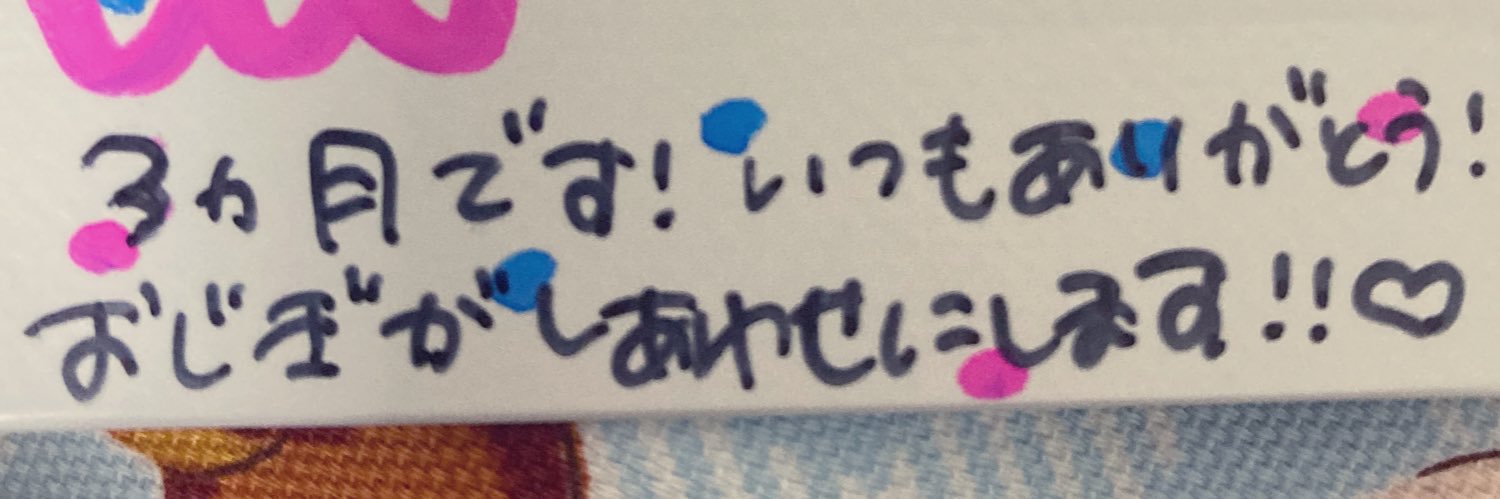 3ヵ月です!いつもありがとう!
おじぎがしあわせにします!!♡